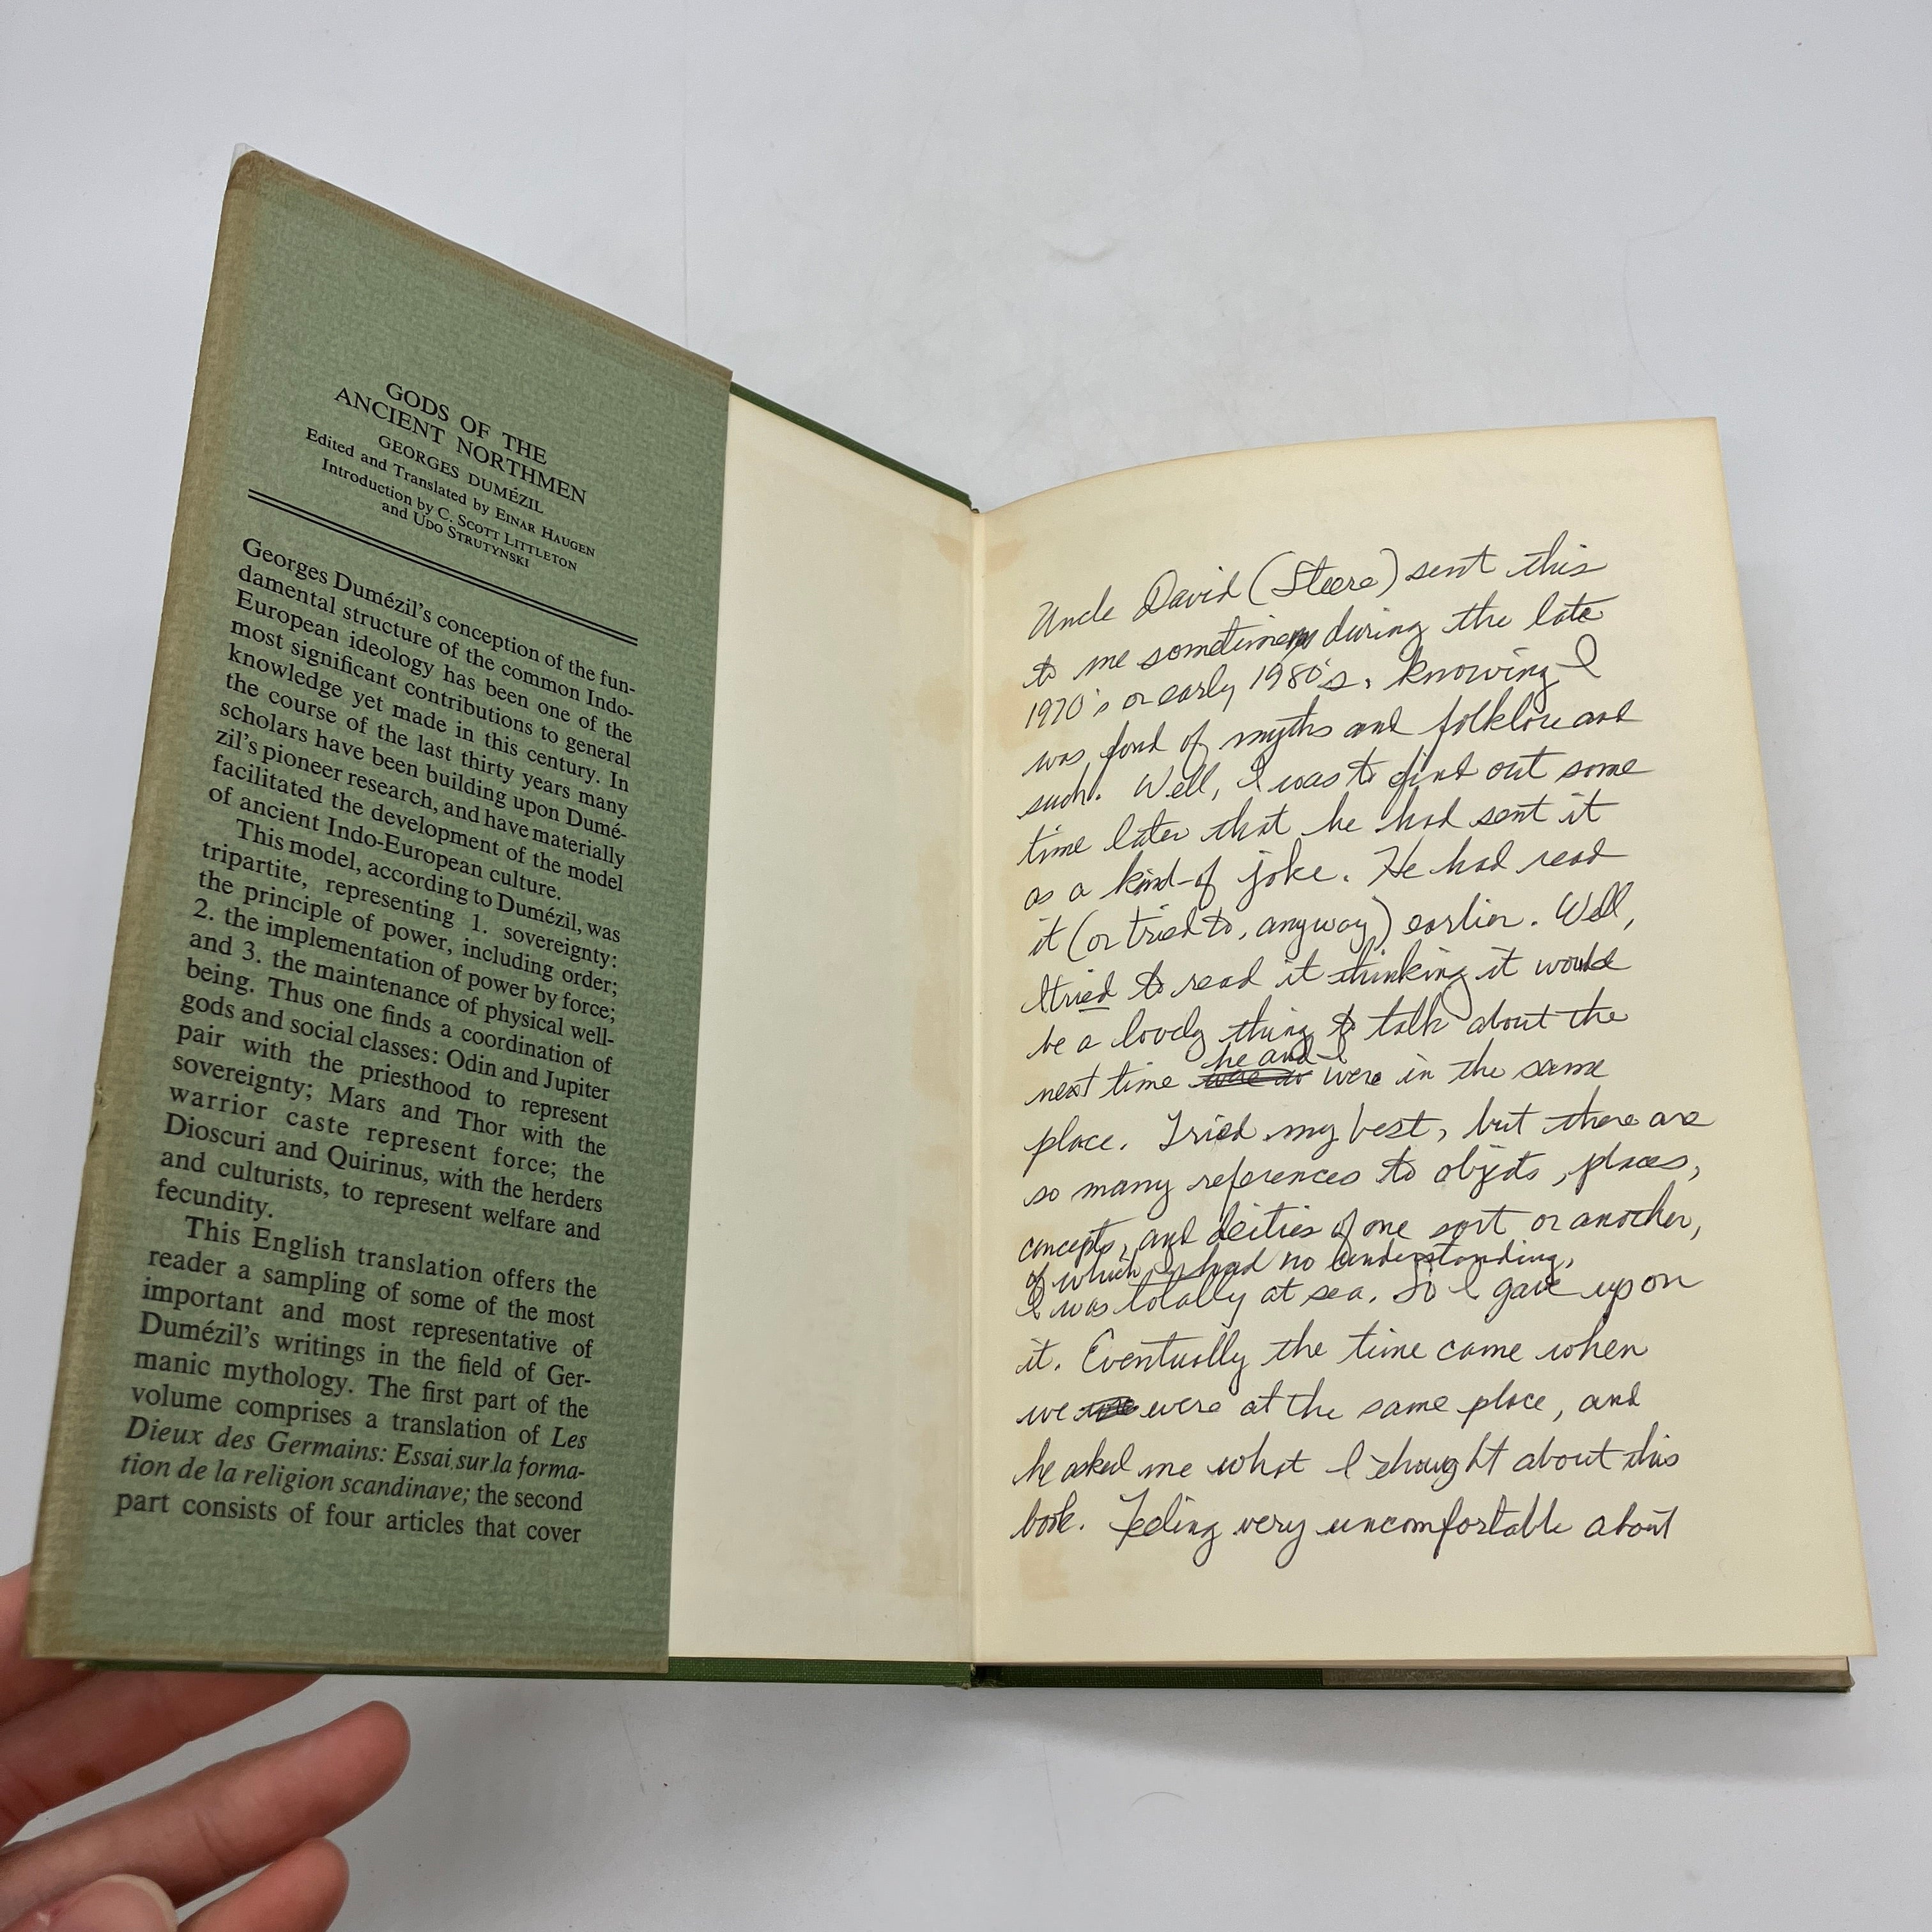 GODS OF THE
ANCIENT NORTHMEN
GEORGES DUMÉZIL
Edited and Translated by EINAR HAUGEN
Introduction by C. SCOTT LITTLETON
and UDO STRUTYNSKI
Georges Dumézil's conception of the fun-
damental structure of the common Indo-
European ideology has been one of the
most significant contributions to general
knowledge yet made in this century. In
the course of the last thirty years many
scholars have been building upon Dumé-
zil's pioneer research, and have materially
facilitated the development of the model
of ancient Indo-European culture.
This model, according to Dumézil, was
tripartite, representing 1. sovereignty:
the principle of power, including order;
2. the implementation of power by force;
and 3. the maintenance of physical well-
being. Thus one finds a coordination of
gods and social classes: Odin and Jupiter
pair with the priesthood to represent
sovereignty; Mars and Thor with the
warrior caste represent force; the
Dioscuri and Quirinus, with the herders
and culturists, to represent welfare and
fecundity.
This English translation offers the
reader a sampling of some of the most
important and most representative of
Dumézil's writings in the field of Ger-
manic mythology. The first part of the
volume comprises a translation of Les
Dieux des Germains: Essai sur la forma-
tion de la religion scandinave; the second
part consists of four articles that cover
Uncle David (Steere) sent this
to me sometime during the late
1970's or early 1980's, knowing I
was fond of myths and folklore and
such. Well, I was to find out some
time later that he had sent it
as a kind-of joke. He had read
it (or tried to, anyway) earlier. Well,
I tried to read it thinking it would
be a lovely thing to talk about the
next time he and I were in the same
place. Tried my best, but there are
so many references to objets, places,
concepts, and deities of one sort or another,
of which I had no understanding,
I was totally at sea. So I gave up on
it. Eventually the time came when
we were at the same place, and
he asked me what I thought about this
book. Feeling very uncomfortable about